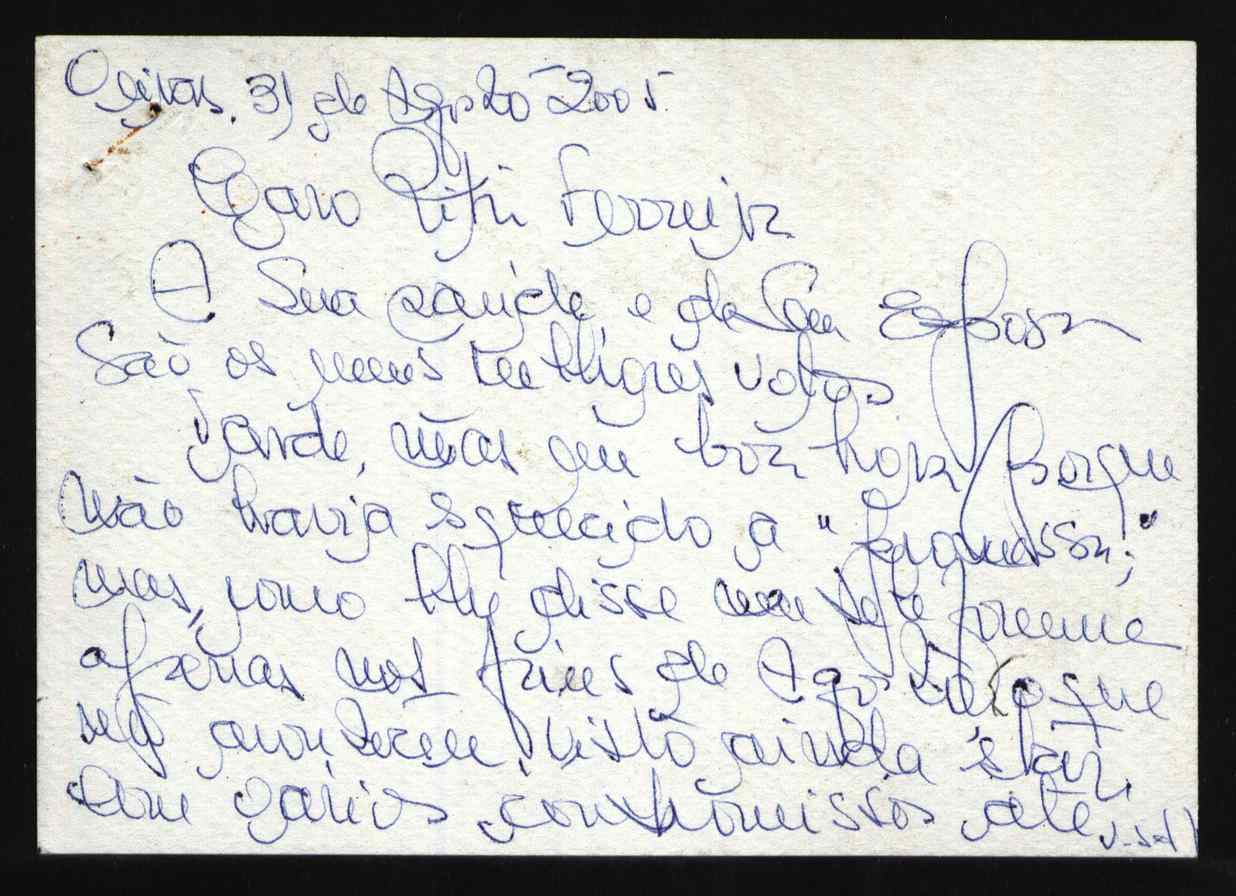 Oeiras, 31 de Agosto 2005
Caro Ferreira
A Sua saúde, e da Sua Esposa
São os meus melhores votos
Tarde, mas em boa hora, porque
não havia esquecido a "promessa;"
mas, como lhe disse
apenas nos fins de Agosto, o que
não aconteceu, visto ainda estar,
com vários compromissos até